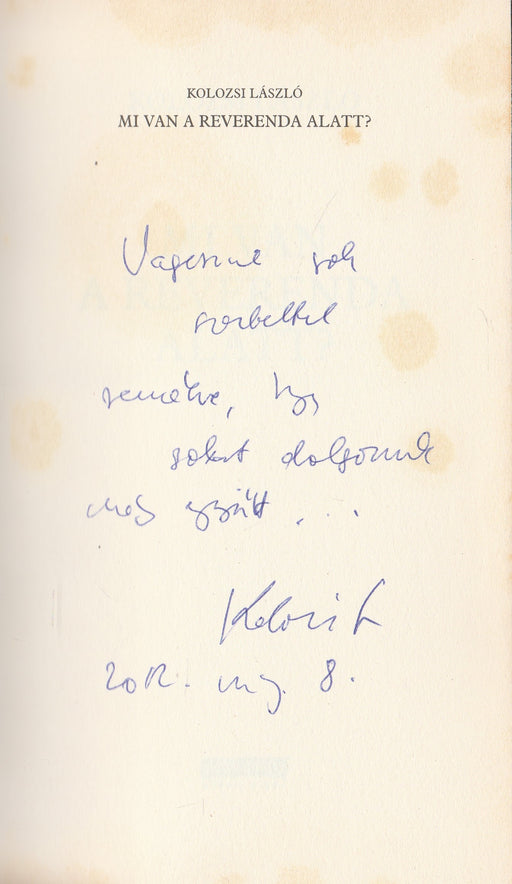 KOLOZSI LÁSZLÓ
MI VAN A REVERENDA ALATT?
sok
szeretettel
remélve, hogy
sokat dolgozunk
még együtt ...
Kolozsi L
2012. máj. 8.